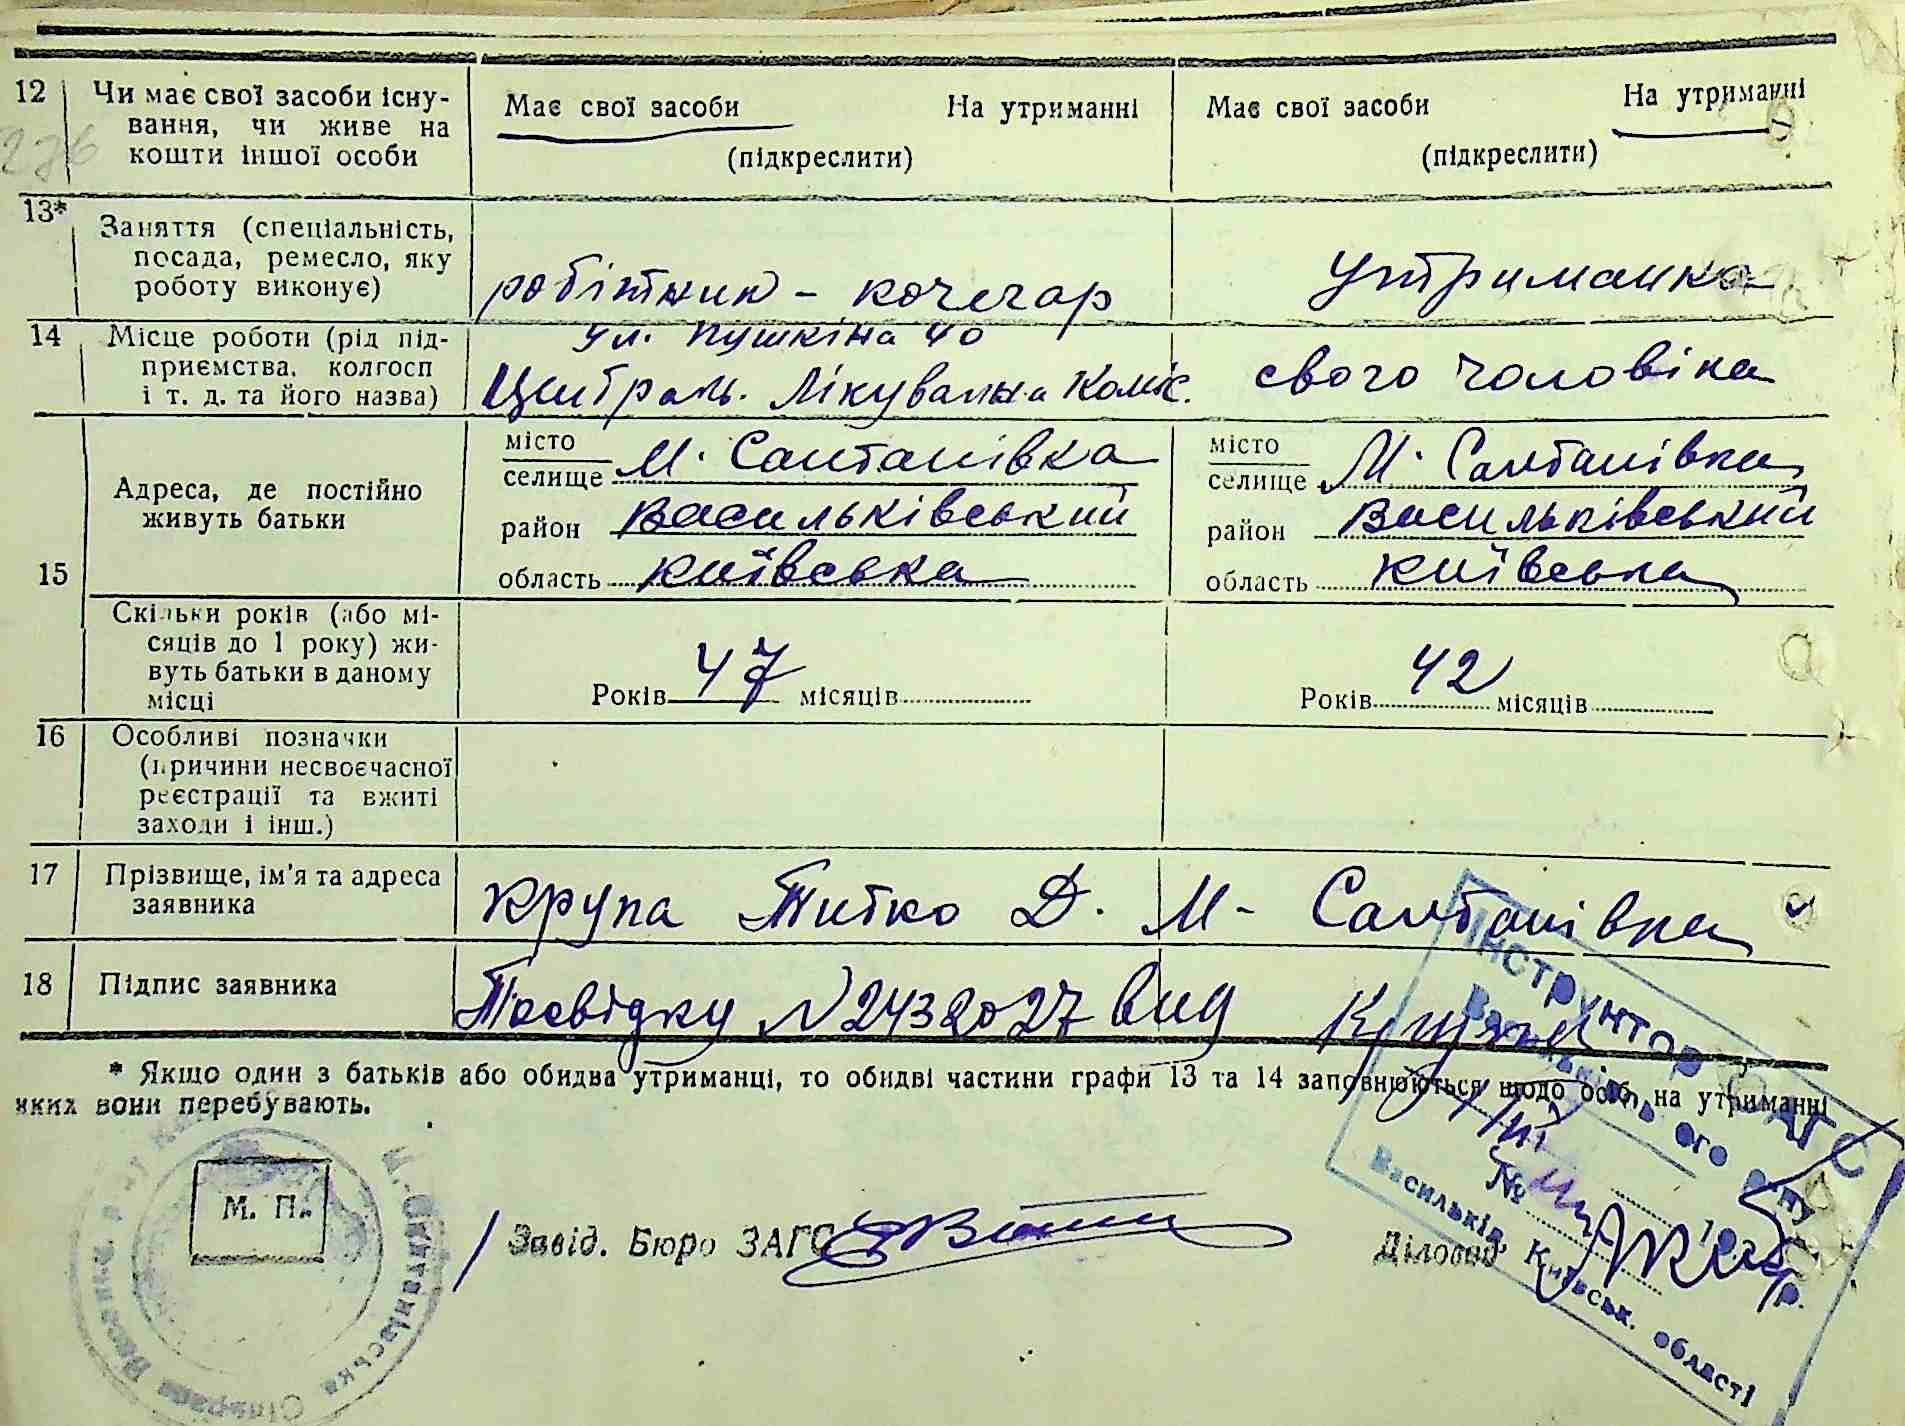 12 Чи має свої засоби існу-
вання, чи живе на
кошти іншої особи
Має свої засоби На утриманні
(підкреслити)
Має свої засоби На утриманні
(підкреслити)
276
13* Заняття (спеціальність,
посада, ремесло, яку
роботу виконує)
робітник - кочегар
Утриманка
14 Місце роботи (рід під-
приємства, колгосп
і т. д. та його назва)
ул. Пушкіна 40
Централь. Лікувальна Коміс.
свого чоловіка
15 Адреса, де постійно
живуть батьки
місто
селище М. Салтанівка
район Васильківський
область Київська
місто
селище М. Салтанівка
район Васильківський
область Київська
Скільки років (або мі-
сяців до 1 року) жи-
вуть батьки в даному
місці
Років 47 місяців
Років 42 місяців
16 Особливі позначки
(причини несвоєчасної
реєстрації та вжиті
заходи і інш.)
17 Прізвище, ім'я та адреса
заявника
Крупа Титко Д. М- Салтанівка
18 Підпис заявника
Посвідку №2432027 вид
* Якщо один з батьків або обидва утриманці, то обидві частини графи 13 та 14 заповнюються щодо осіб, на утриманні
яких вони перебувають.
М. П.
Завід. Бюро ЗАГС
Діловод
Інструктор ЗАГС
Васильківського р-ну
№
Васильків, Київськ. області
М.-Салтанівська Сільрада